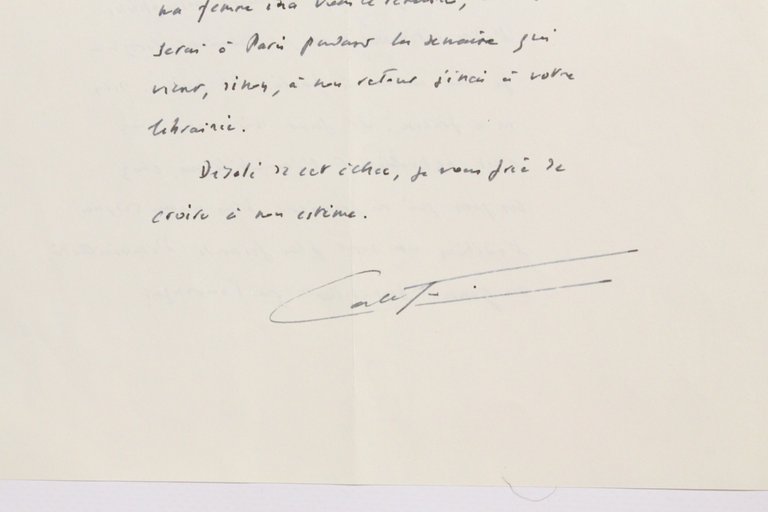 ma femme ira
serai à Paris pendant la semaine qui
vient, sinon, à mon retour j'irai à votre
librairie.
Désolé de cet échec, je vous prie de
croire à mon estime.